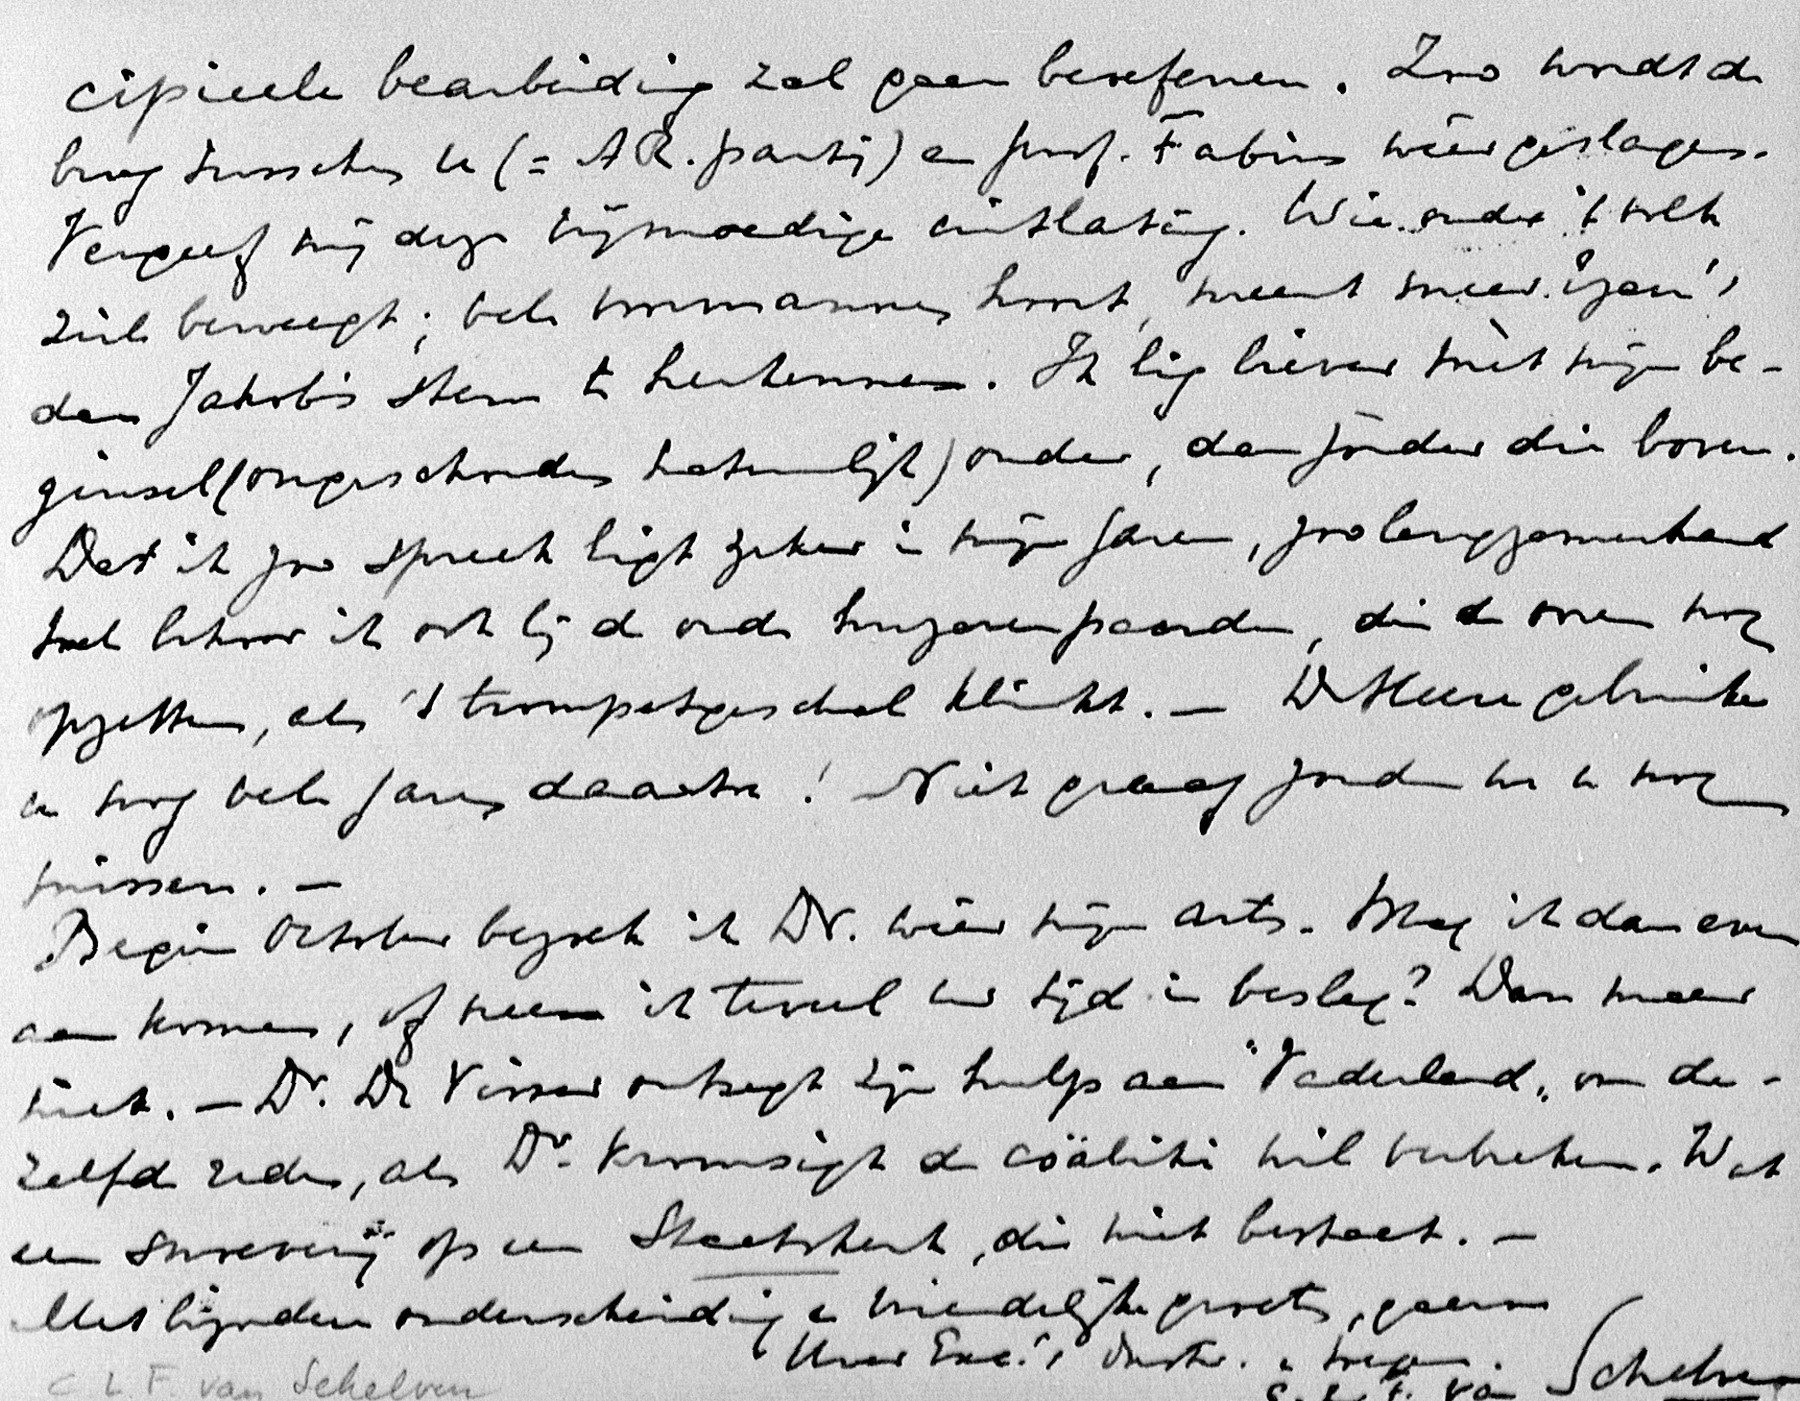 cipieele bearbeiding zal gaan beoefenen. Zoo wordt de
brug tusschen U (= AR. partij) en prof. Fabius wéér geslagen.
Vergeef mij deze vrijmoedige uitlating. Wie onder 't volk
zich beweegt; vele voormannen hoort, meent meer.
den Jakob's stem te herkennen. Ik lig liever mèt mijn be-
ginsel (ongeschonden natuurlijk) onder, dan zónder die boven.
Dat ik zoo spreek ligt zeker in mijn jaren, zoo langzamerhand
toch behoor ik ook bij de oude huzarenpaarden, die de ooren nog
opzetten, als 't trompetgeschal klinkt. — De Heere gebruike
U nog vele jaren daartoe! Niet graag zouden we U nog
missen. —
Begin October bezoek ik D.V. wéér mijn arts. Mag ik dan even
aan komen, of neem ik teveel Uw tijd in beslag? Dan maar
niet. — Dr. De Visser ontzegt zijn hulp aan "Vaderland„ om de-
zelfde reden, als Dr. Kromsigt de coälitie wil verbreken. Wat
een op een Staatskerk, die niet bestaat. —
Met bijzondere onderscheiding en vriendelijke groeten, gaarne
Uwer Exc.'s
C.L.F. van Schelven
C. L. F. van Schelven